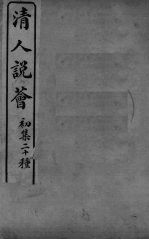 清人說薈
初集二十種